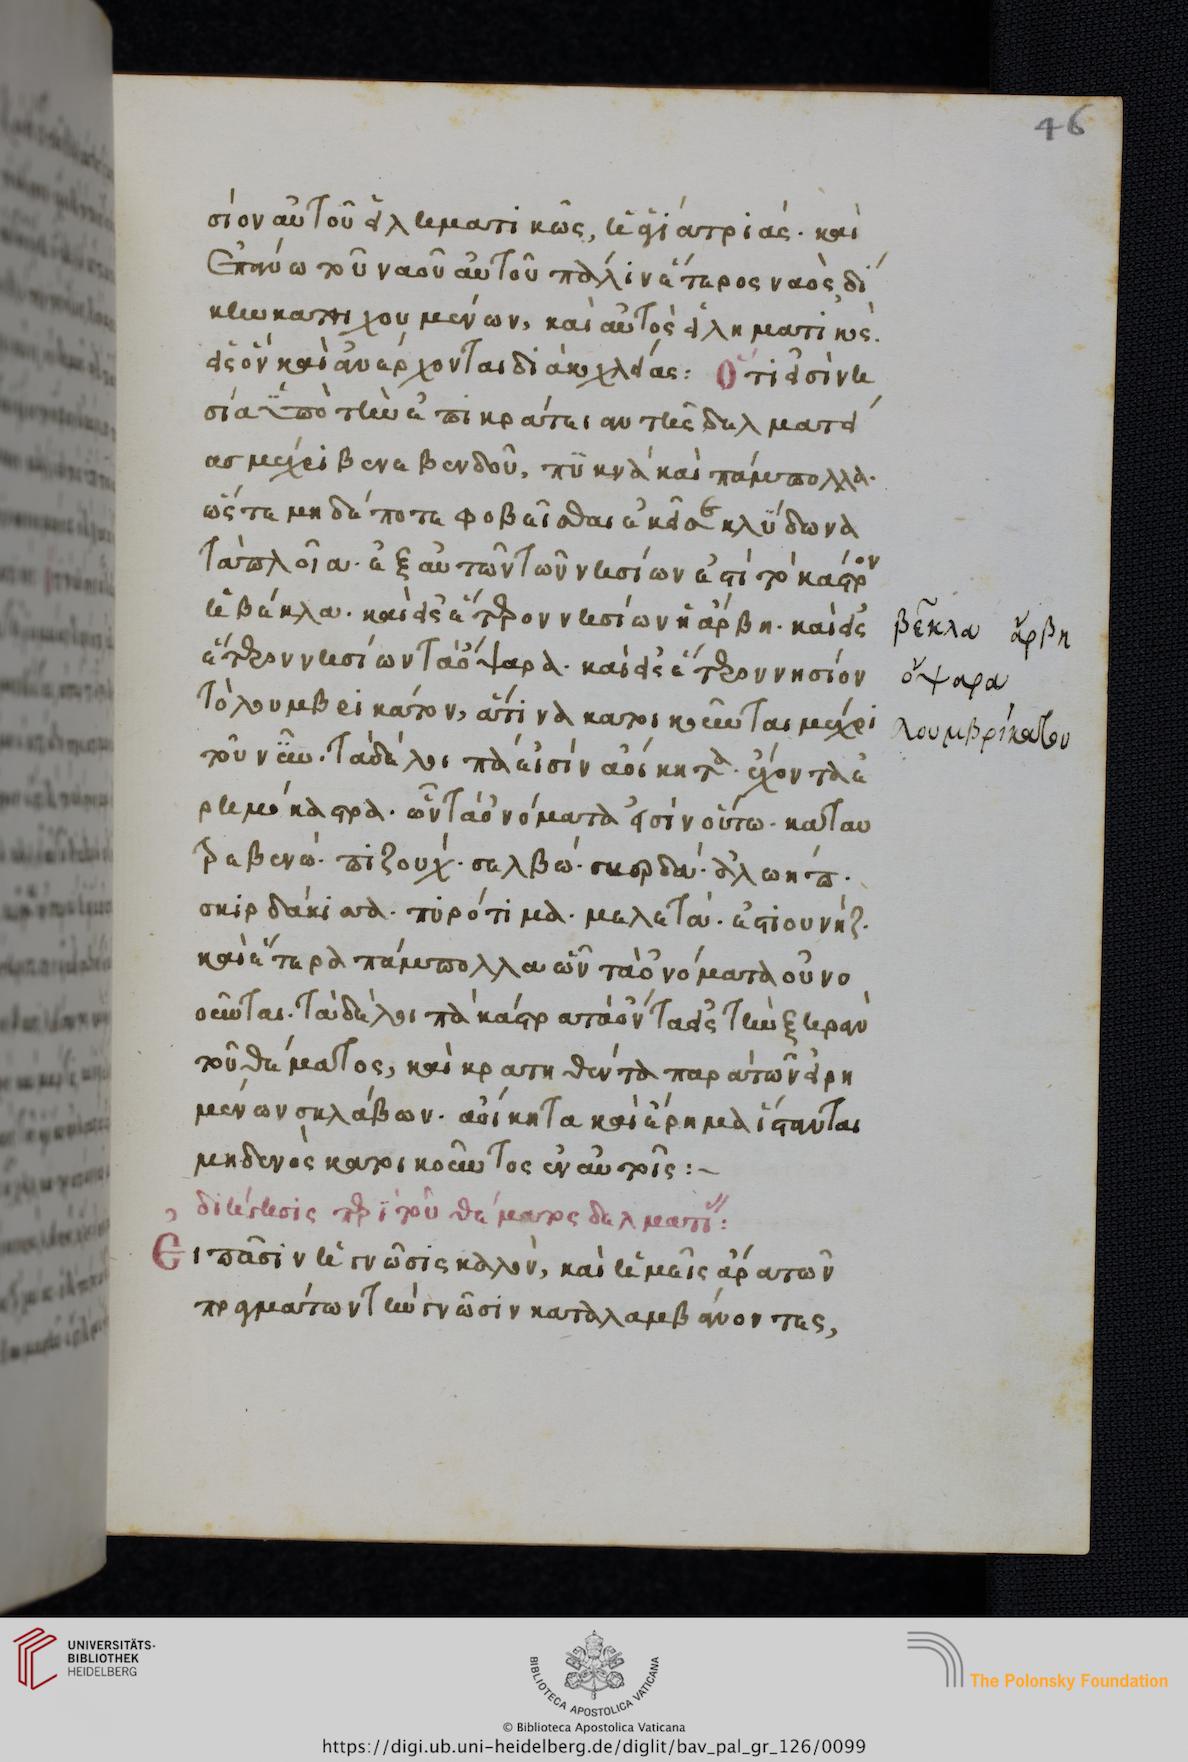 46
σίον αὐτοῦ εἰλιματικῶς, ἡ ἱστρίας. καὶ
ἐπάνω τοῦ ναοῦ αὐτοῦ πάλιν ἕτερος ναὸς δί
κην κατηχουμένων, καὶ αὐτὸς εἰληματικὸς.
εἰς ὃν καὶ ἀνέρχονται διὰ κοχλείας: Ὅτι εἰσὶ νη
σία ὑπὸ τὴν ἐπικράτειαν τῆς δαλματεί
ας μέχρι βενεβενδοῦ, πυκνὰ καὶ πάμπολλα.
ὥστε μηδέποτε φοβεῖσθαι ἐκεῖσε κλύδωνα
τὰ πλοῖα. ἐξ αὐτῶν τῶν νησίων ἐστὶ τὸ κάστρον
ἡ βέκλα. καὶ εἰς ἕτερον νησίων ἡ ἄρβη. καὶ εἰς
ἕτερον νησίων τὰ ὄψαρα. καὶ εἰς ἕτερον νησίον
τὸ λουμβρικάτον, ἅτινα κατοικοῦνται μέχρι
τοῦ νῦν. τὰ δὲ λοιπὰ εἰσὶν ἀοίκητα. ἔχοντα ἐ
ρημόκαστρα. ὧν τὰ ὀνόματα εἰσὶν οὕτω. καταυ
τρεβενώ. πιζούχ. σελβώ. σκερδά. ἀλωήπ.
σκιρδάκισσα. πυρότιμα. μελετά. ἐστιουνήζ.
καὶ ἕτερα πάμπολλα ὧν τὰ ὀνόματα οὐ νο
οῦνται. τὰ δὲ λοιπὰ κάστρα τὰ ὄντα εἰς τὴν ξηρὰν
τοῦ θέματος, καὶ κρατηθέντα παρὰ τῶν εἰρη
μένων σκλάβων. ἀοίκητα καὶ ἔρημα ἵστανται
μηδενὸς κατοικοῦντος ἐν αὐτοῖς:
διήγησις περὶ τοῦ θέματος δελματί:
Εἰ πᾶσιν ἡ γνῶσις καλὸν, καὶ ἡμεῖς ἄρα τῶν
πραγμάτων τὴν γνῶσιν καταλαμβάνοντες,
βέκλα ἄρβη
ὄψαρα
λουμβρίκατον
UNIVERSITÄTS-
BIBLIOTHEK
HEIDELBERG
BIBLIOTECA APOSTOLICA VATICANA
The Polonsky Foundation
© Biblioteca Apostolica Vaticana
https://digi.ub.uni-heidelberg.de/diglit/bav_pal_gr_126/0099